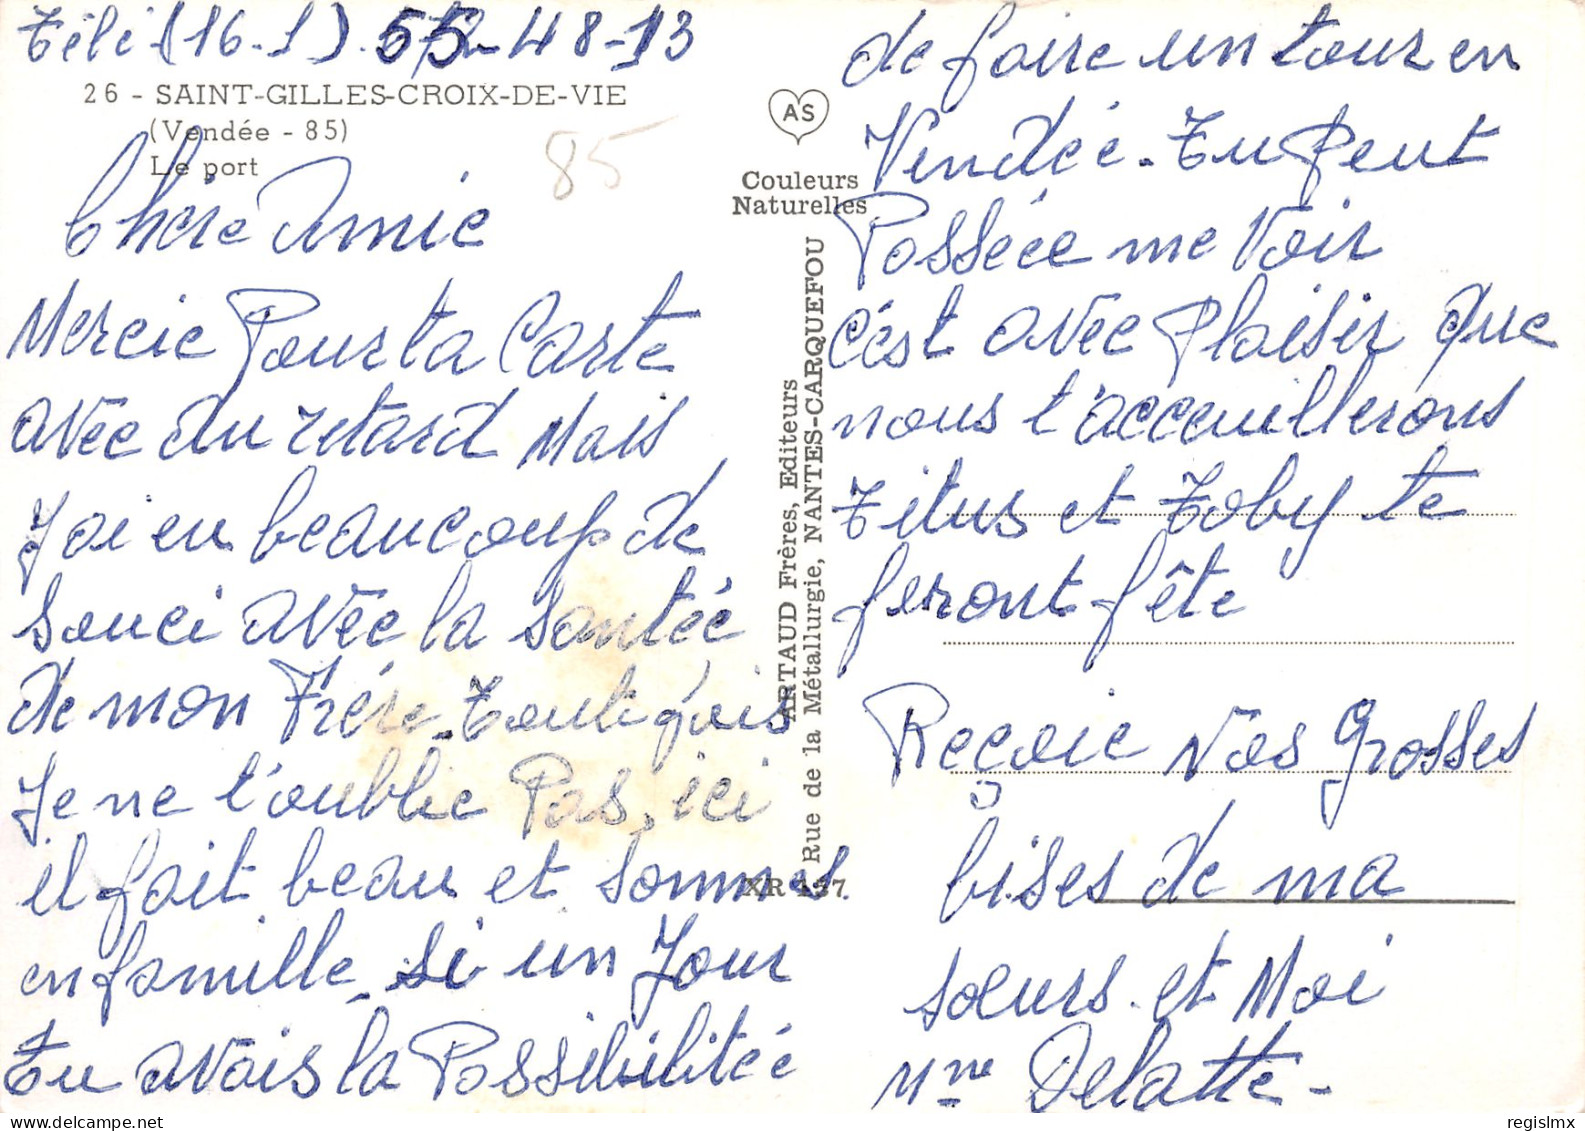 Télé (16-1) 55-48-13
26 - SAINT-GILLES-CROIX-DE-VIE
(Vendée - 85)
Le port
85
Chère Amie
Mercie Pour ta Carte
avec du retard Mais
J'ai eu beaucoup de
souci avec la santée
de mon Frère - Toute fois
Je ne t'oublie Pas, ici
il fait beau et sommes
en famille - si un Jour
Tu avais la Possibilitée
AS
Couleurs
Naturelles
ARTAUD Frères, Editeurs
Rue de la Métallurgie, NANTES-CARQUEFOU
XR
de faire un tour en
Vendée - Tu Peut
Passée me Voir
c'est avec Plaisir que
nous t'acceuillerons
Titus et Toby te
feront fête
Reçoie Nos Grosses
bises de ma
sœurs et Moi
Mme Delatte -
regislmx